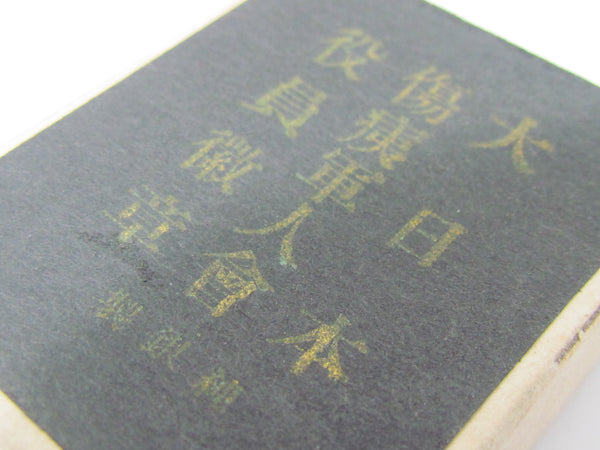 大日本
傷痍軍人會
役員徽章
純銀製